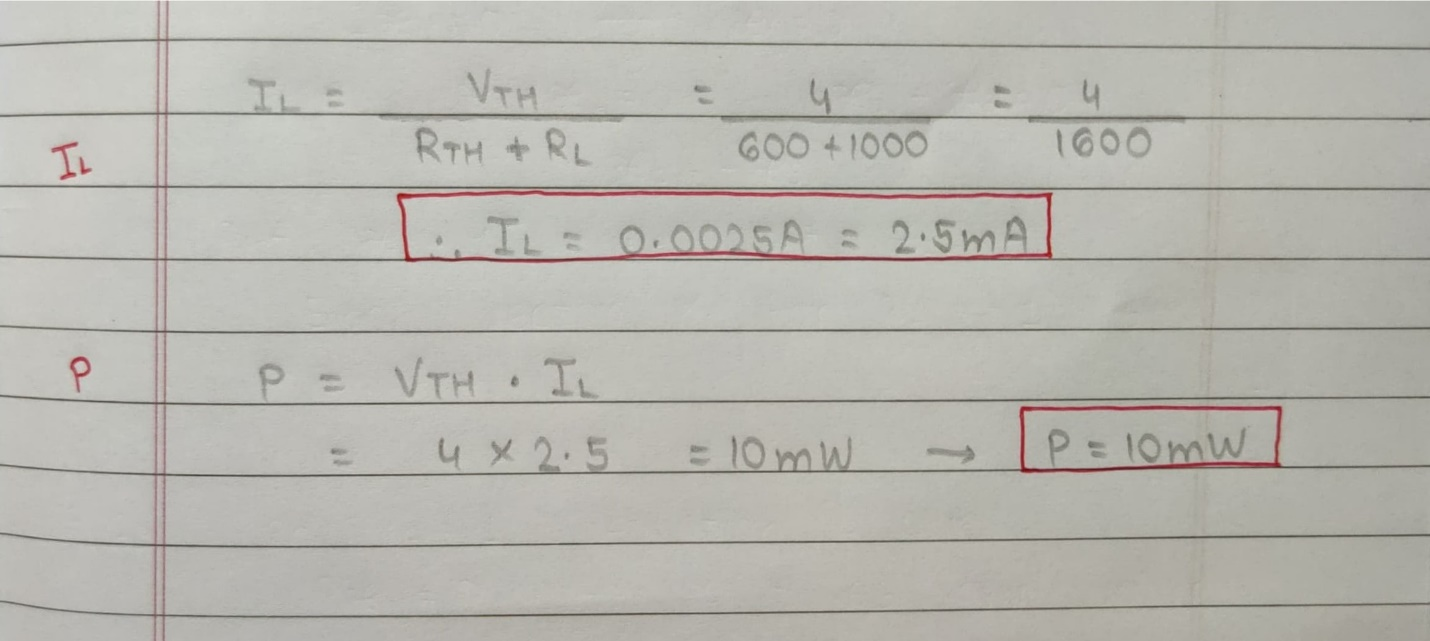 I_L = V_TH / (R_TH + R_L) = 4 / (600 + 1000) = 4 / 1600
I_L
∴ I_L = 0.0025A = 2.5mA
P
P = V_TH · I_L
= 4 × 2.5 = 10mW → P = 10mW